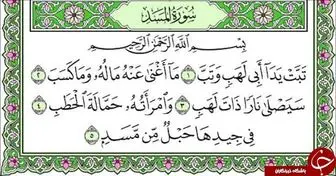 سُورَةُ الْمَسَدِ
بِسْمِ اللَّهِ الرَّحْمَٰنِ الرَّحِيمِ
تَبَّتْ يَدَا أَبِي لَهَبٍ وَتَبَّ ١ مَا أَغْنَىٰ عَنْهُ مَالُهُ وَمَا كَسَبَ ٢
سَيَصْلَىٰ نَارًا ذَاتَ لَهَبٍ ٣ وَامْرَأَتُهُ حَمَّالَةَ الْحَطَبِ ٤
فِي جِيدِهَا حَبْلٌ مِّن مَّسَدٍ ٥
باشگاه خبرنگاران